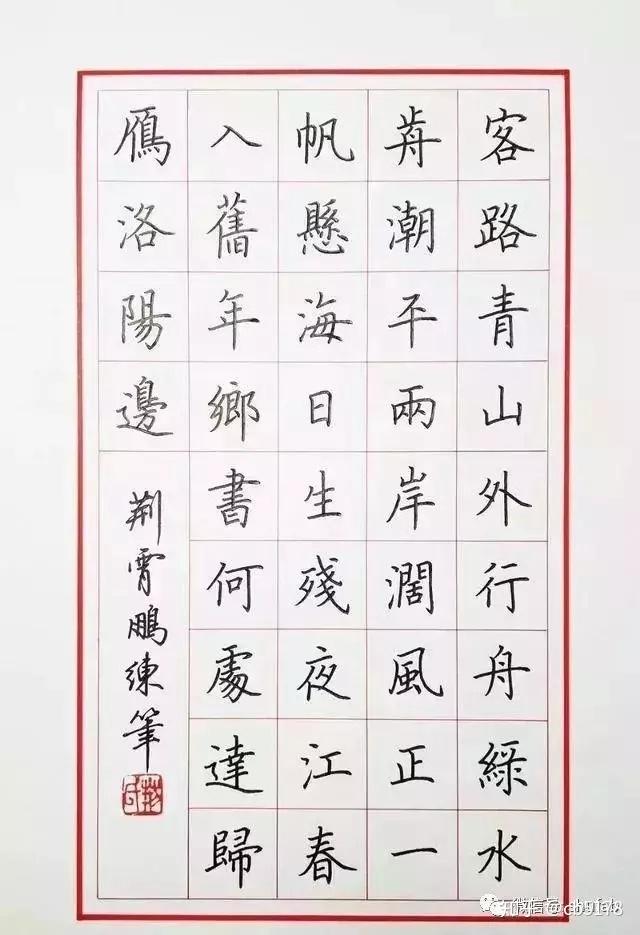 客路青山外行舟綠水
歬潮平兩岸濶風正一
帆懸海日生殘夜江春
入舊年鄉書何處達歸
鴈洛陽邊
荆霄鵬練筆
知乎 @cb9178